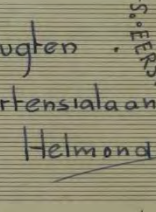 ugten
rtensialaan
Helmond
S. EERS